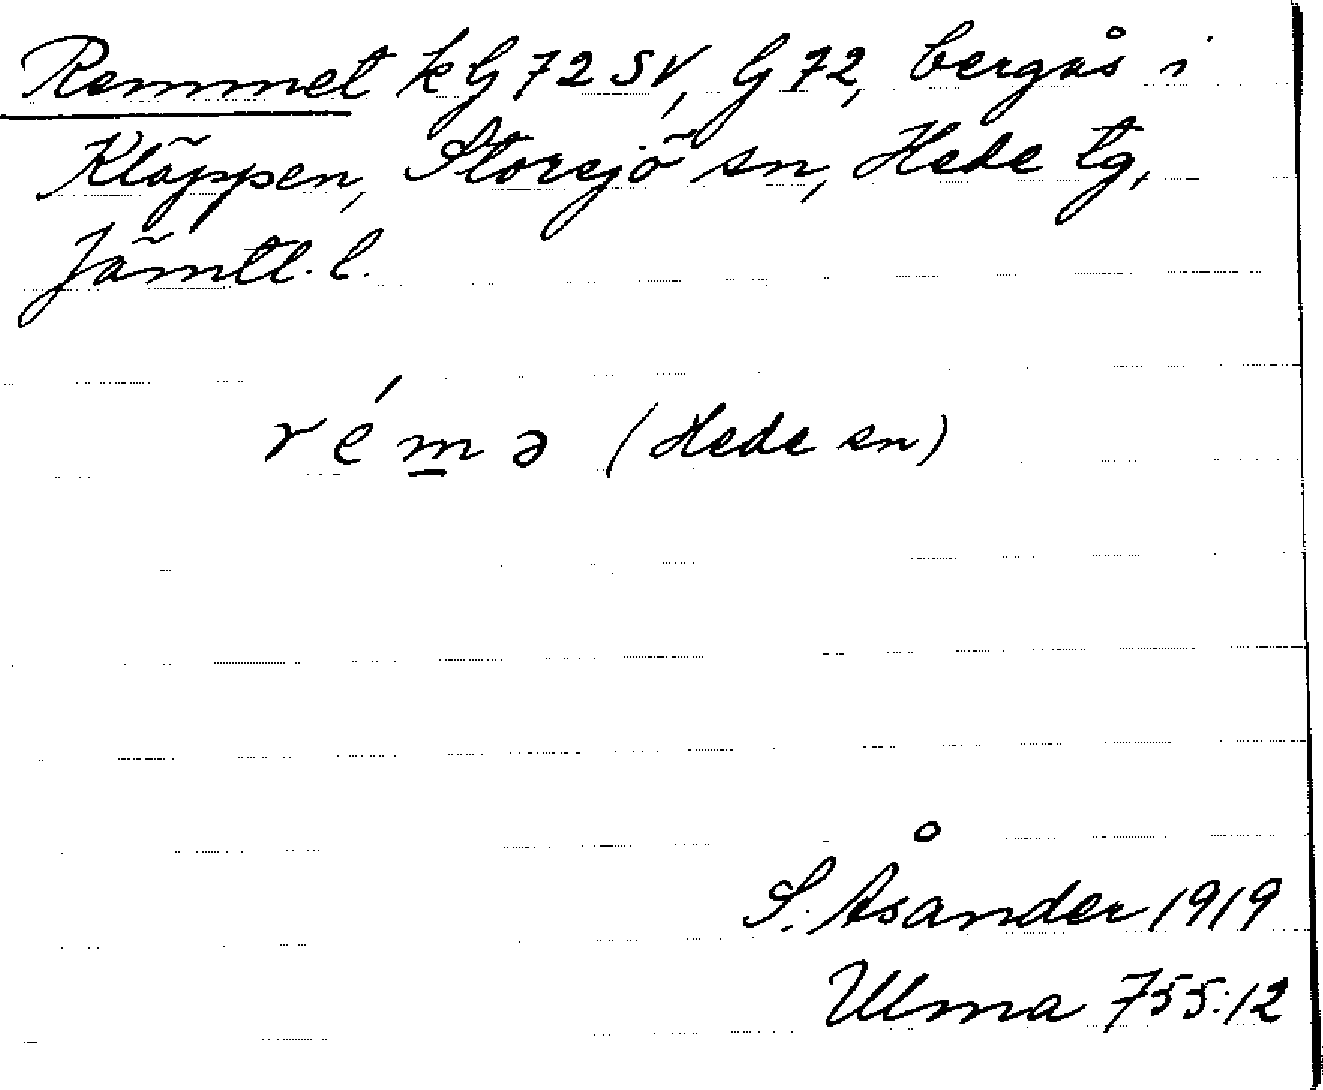 Remmet kG 72 SV, G 72, bergås i
Kläppen, Storsjö sn, Hede tg,
Jämtl. l.
rémə (Hede sn)
S. Åsander 1919
Ulma 755:12